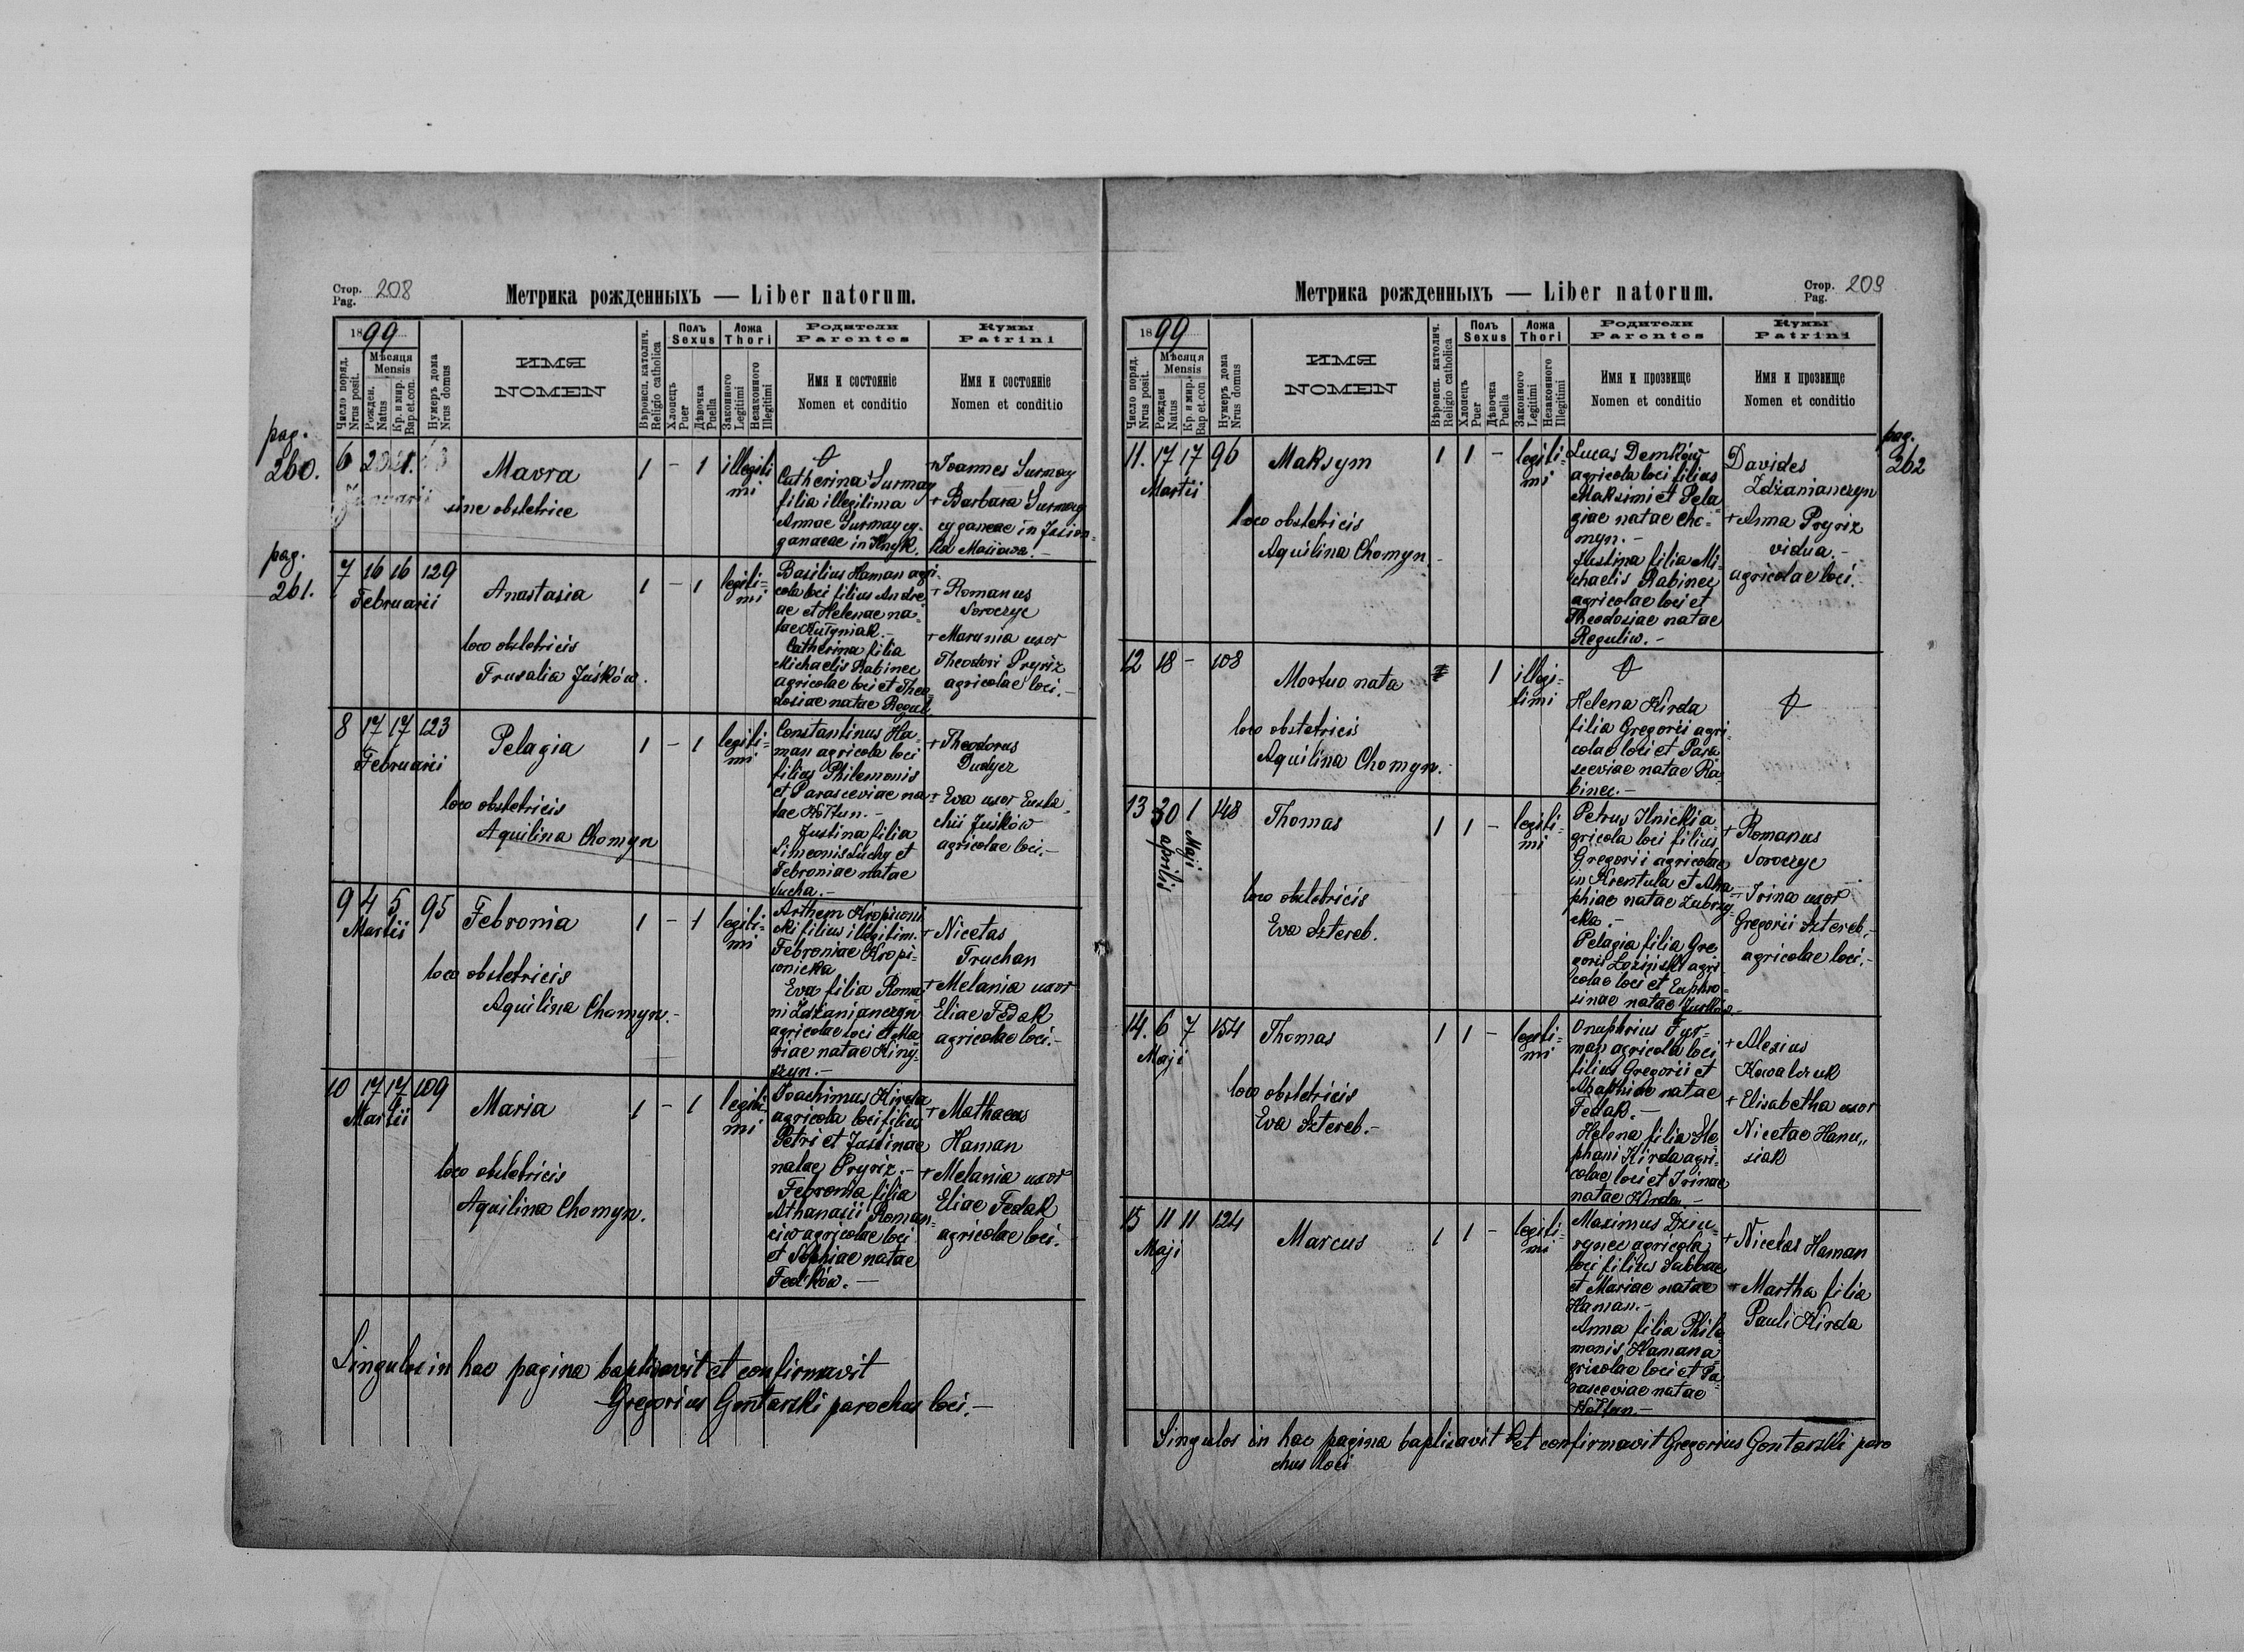 Стор.
Pag. 208
Метрика рожденныхъ — Liber natorum.
1899
Число поряд.
Nrus posit.
Мѣсяця
Mensis
Рожден.
Natus
Кр. и мир.
Bap et.con.
Нумеръ дома
Nrus domus
ИМЯ
NOMEN
Вѣроисп. католич.
Religio catholica
Полъ
Sexus
Хлопецъ
Puer
Дѣвочка
Puella
Ложа
Thori
Законного
Legitimi
Незаконного
Illegitimi
Родители
Parentes
Имя и состояніе
Nomen et conditio
Кумы
Patrini
Имя и состояніе
Nomen et conditio
pag.
260.
6
Januarii
Mavra
sine obstetrice
1 - 1
illegiti
mi
Catherina Surmay
filia illegitima
Annae Surmay cy-
ganaeae in Ilnyk.
+ Joannes Surmay
+ Barbara Surmay
cyganeae in Jasion-
ka Masiowa. -
pag.
261.
7 16 16 129
Februarii
Anastasia
loco obstetricis
Frusalia Juśków.
1 - 1
legiti=
mi
Basilius Haman agri-
cola loci filius Andre
ae et Helenae na-
tae Kuryniak. -
Catherina filia
Michaelis Rabinec
agricolae loci et Theo-
dosiae natae Regul
+ Romanus
Soroczyc
+ Marunia uxor
Theodori Pryriz
agricolae loci. -
8 17 17 123
Februarii
Pelagia
loco obstetricis
Aquilina Chomyn
1 - 1
legiti-
mi
Constantinus Ha-
man agricola loci
filius Philemonis
et Parasceviae na-
tae Kołtun. -
Justina filia
Simeonis Suchy et
Febroniae natae
Sucha. -
+ Theodorus
Dudycz
+ Eva uxor Eusta-
chii Juśków
agricolae loci. -
9 4 5 95
Martii
Febronia
loco obstetricis
Aquilina Chomyn. -
1 - 1
legiti-
mi
Arthem Kropiwni
cki filius illegitim.
Febroniae Kropi-
wnicka
Eva filia Roma-
ni Zdżanianczyn
agricolae loci et Ma-
riae natae Kiny-
szyn. -
+ Nicetas
Fruchan
+ Melania uxor
Eliae Fedak
agricolae loci. -
10 17 17 109
Martii
Maria
loco obstetricis
Aquilina Chomyn.
1 - 1
legiti-
mi
Joachimus Kirda
agricola loci filius
Petri et Justinae
natae Pryriz. -
Febronia filia
Athanasii Roman-
ciw agricolae loci
et Sophiae natae
Fedków. -
+ Mathaeus
Haman
+ Melania uxor
Eliae Fedak
agricolae loci.
Singulos in hac pagina baptisavit et confirmavit
Gregorius Gontarski parochus loci. -
Стор.
Pag. 209
Метрика рожденныхъ — Liber natorum.
1899
Число поряд.
Nrus posit.
Мѣсяця
Mensis
Рожден
Natus
Кр. и мир.
Bap et.con.
Нумеръ дома
Nrus domus
ИМЯ
NOMEN
Вѣроисп. католич.
Religio catholica
Полъ
Sexus
Хлопецъ
Puer
Дѣвочка
Puella
Ложа
Thori
Законного
Legitimi
Незаконного
Illegitimi
Родители
Parentes
Имя и прозвище
Nomen et conditio
Кумы
Patrini
Имя и прозвище
Nomen et conditio
pag.
262
11. 17 17 96
Martii
Maksym
loco obstetricis
Aquilina Chomyn -
1 1 -
legiti-
mi
Lucas Demków
agricola loci filius
Maksimi et Pela
giae natae Cho-
myn. -
Justina filia Mi-
chaelis Rabinec
agricolae loci et
Theodosiae natae
Reguliw. -
Davides
Zdżanianczyn
+ Anna Pryriz
vidua. -
agricolae loci.
12 18 - 108
Mortuo nata
loco obstetricis
Aquilina Chomyn.
1
illegi-
timi
Helena Kirda
filia Gregorii agri-
colae loci et Para
sceviae natae Ra
binec. -
13 30 1 148
aprilis
Maji
Thomas
loco obstetricis
Eva Sztereb.
1 1 -
legiti-
mi
Petrus Ilnicki a-
gricola loci filius
Gregorii agricolae
in Krentula et Aha
phiae natae Zubrzy-
cka. -
Pelagia filia Gre-
gorii Łoziński agri-
colae loci et Euphro-
sinae natae Juśków -
+ Romanus
Soroczyc
- Irina uxor
Gregorii Sztereb. -
agricolae loci. -
14. 6 7 154
Maji
Thomas
loco obstetricis
Eva Sztereb. -
1 1 -
legiti-
mi
Onuphrius Fur-
man agricola loci
filius Gregorii et
Ahaphiae natae
Fedak. -
Helena filia Ste-
phani Kirda agri-
colae loci et Irinae
natae Kirda -
+ Alexius
Kowalczuk
+ Elisabetha uxor
Nicetae Hanu„
siak
15 11 11 124
Maji
Marcus
1 1 -
legiti-
mi
Maximus Dziu-
rynec agricola
loci filius Sabbae
et Mariae natae
Haman. -
Anna filia Phile
monis Haman a-
gricolae loci et Pa-
rasceviae natae
Kołtun. -
+ Nicetas Haman
+ Martha filia
Pauli Kirda
Singulos in hac pagina baptisavit et confirmavit Gregorius Gontarski paro
chus loci